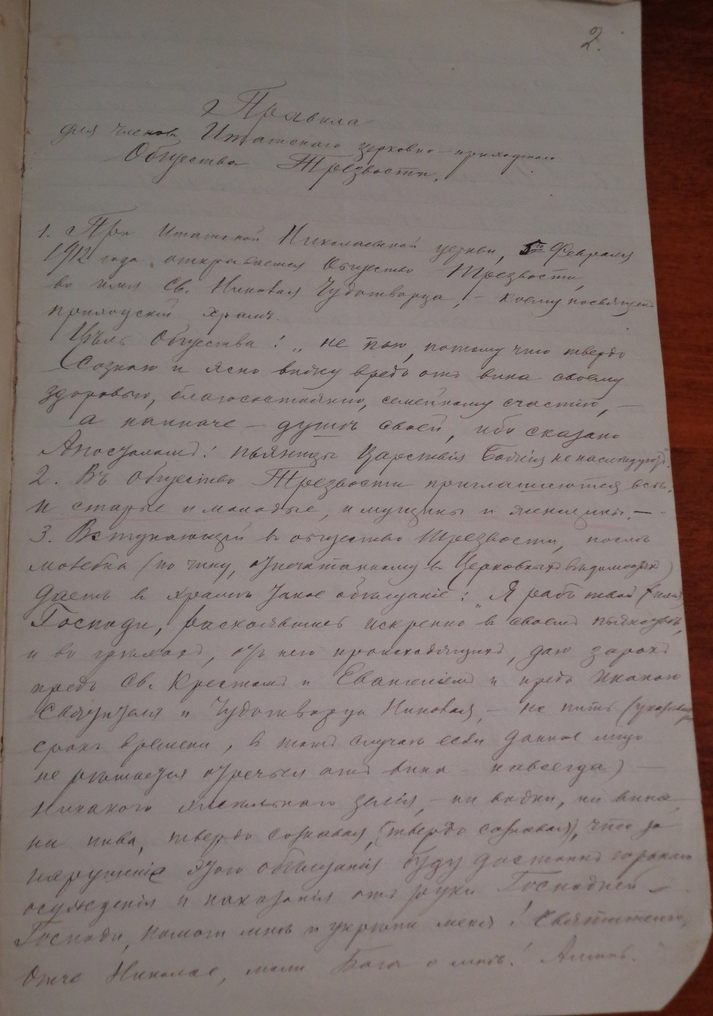 2.
Правила
для членов Итатского церковно-приходского
Общества Трезвости.
1. При Итатской Николаевской церкви, 5го Февраля
1912 года открывается Общество Трезвости,
во имя Св. Николая Чудотворца, – коему посвящен
приходский храмъ.
Цѣль Общества: „не пью, потому что твердо
сознаю и ясно вижу вредъ отъ вина своему
здоровью, благосостоянию, семейному счастью, –
а паипаче – душѣ своей, ибо сказано
Апостоломъ: пьяницы Царствія Божія не наслѣдуютъ.
2. Въ общество Трезвости приглашаются всѣ:
и старые и молодые, и мущины и женщины. –
3. Вступающій в общество трезвости, послѣ
молебна (по чину, отпечатанному в Церковных вѣдомостях)
даетъ в храмѣ такое обѣщаніе: „Я рабъ твой (имя)
Господи, раскаявшись искренно в своемъ пьянствѣ,
и во грѣхахъ, отъ него происходящихъ, даю зарокъ
предъ Св. Крестомъ и Евангеліемъ и предъ иконою
Святителя и Чудотворца Николая, – не пить (указывая
срокъ времени, в томъ случаѣ если данное лицо
не рѣшается отречься отъ вина – навсегда) –
никакого хмельнаго зелія, – ни водки, ни вина,
ни пива, твердо сознавая, (твердо сознавая), что за
нарушеніе этого обѣщанія буду достоинъ горькаго
осужденія и наказанія отъ руки Господней –
Господи, помоги мнѣ и укрѣпи меня! Святителю,
Отче Николае, моли Бога о мнѣ! Аминь.